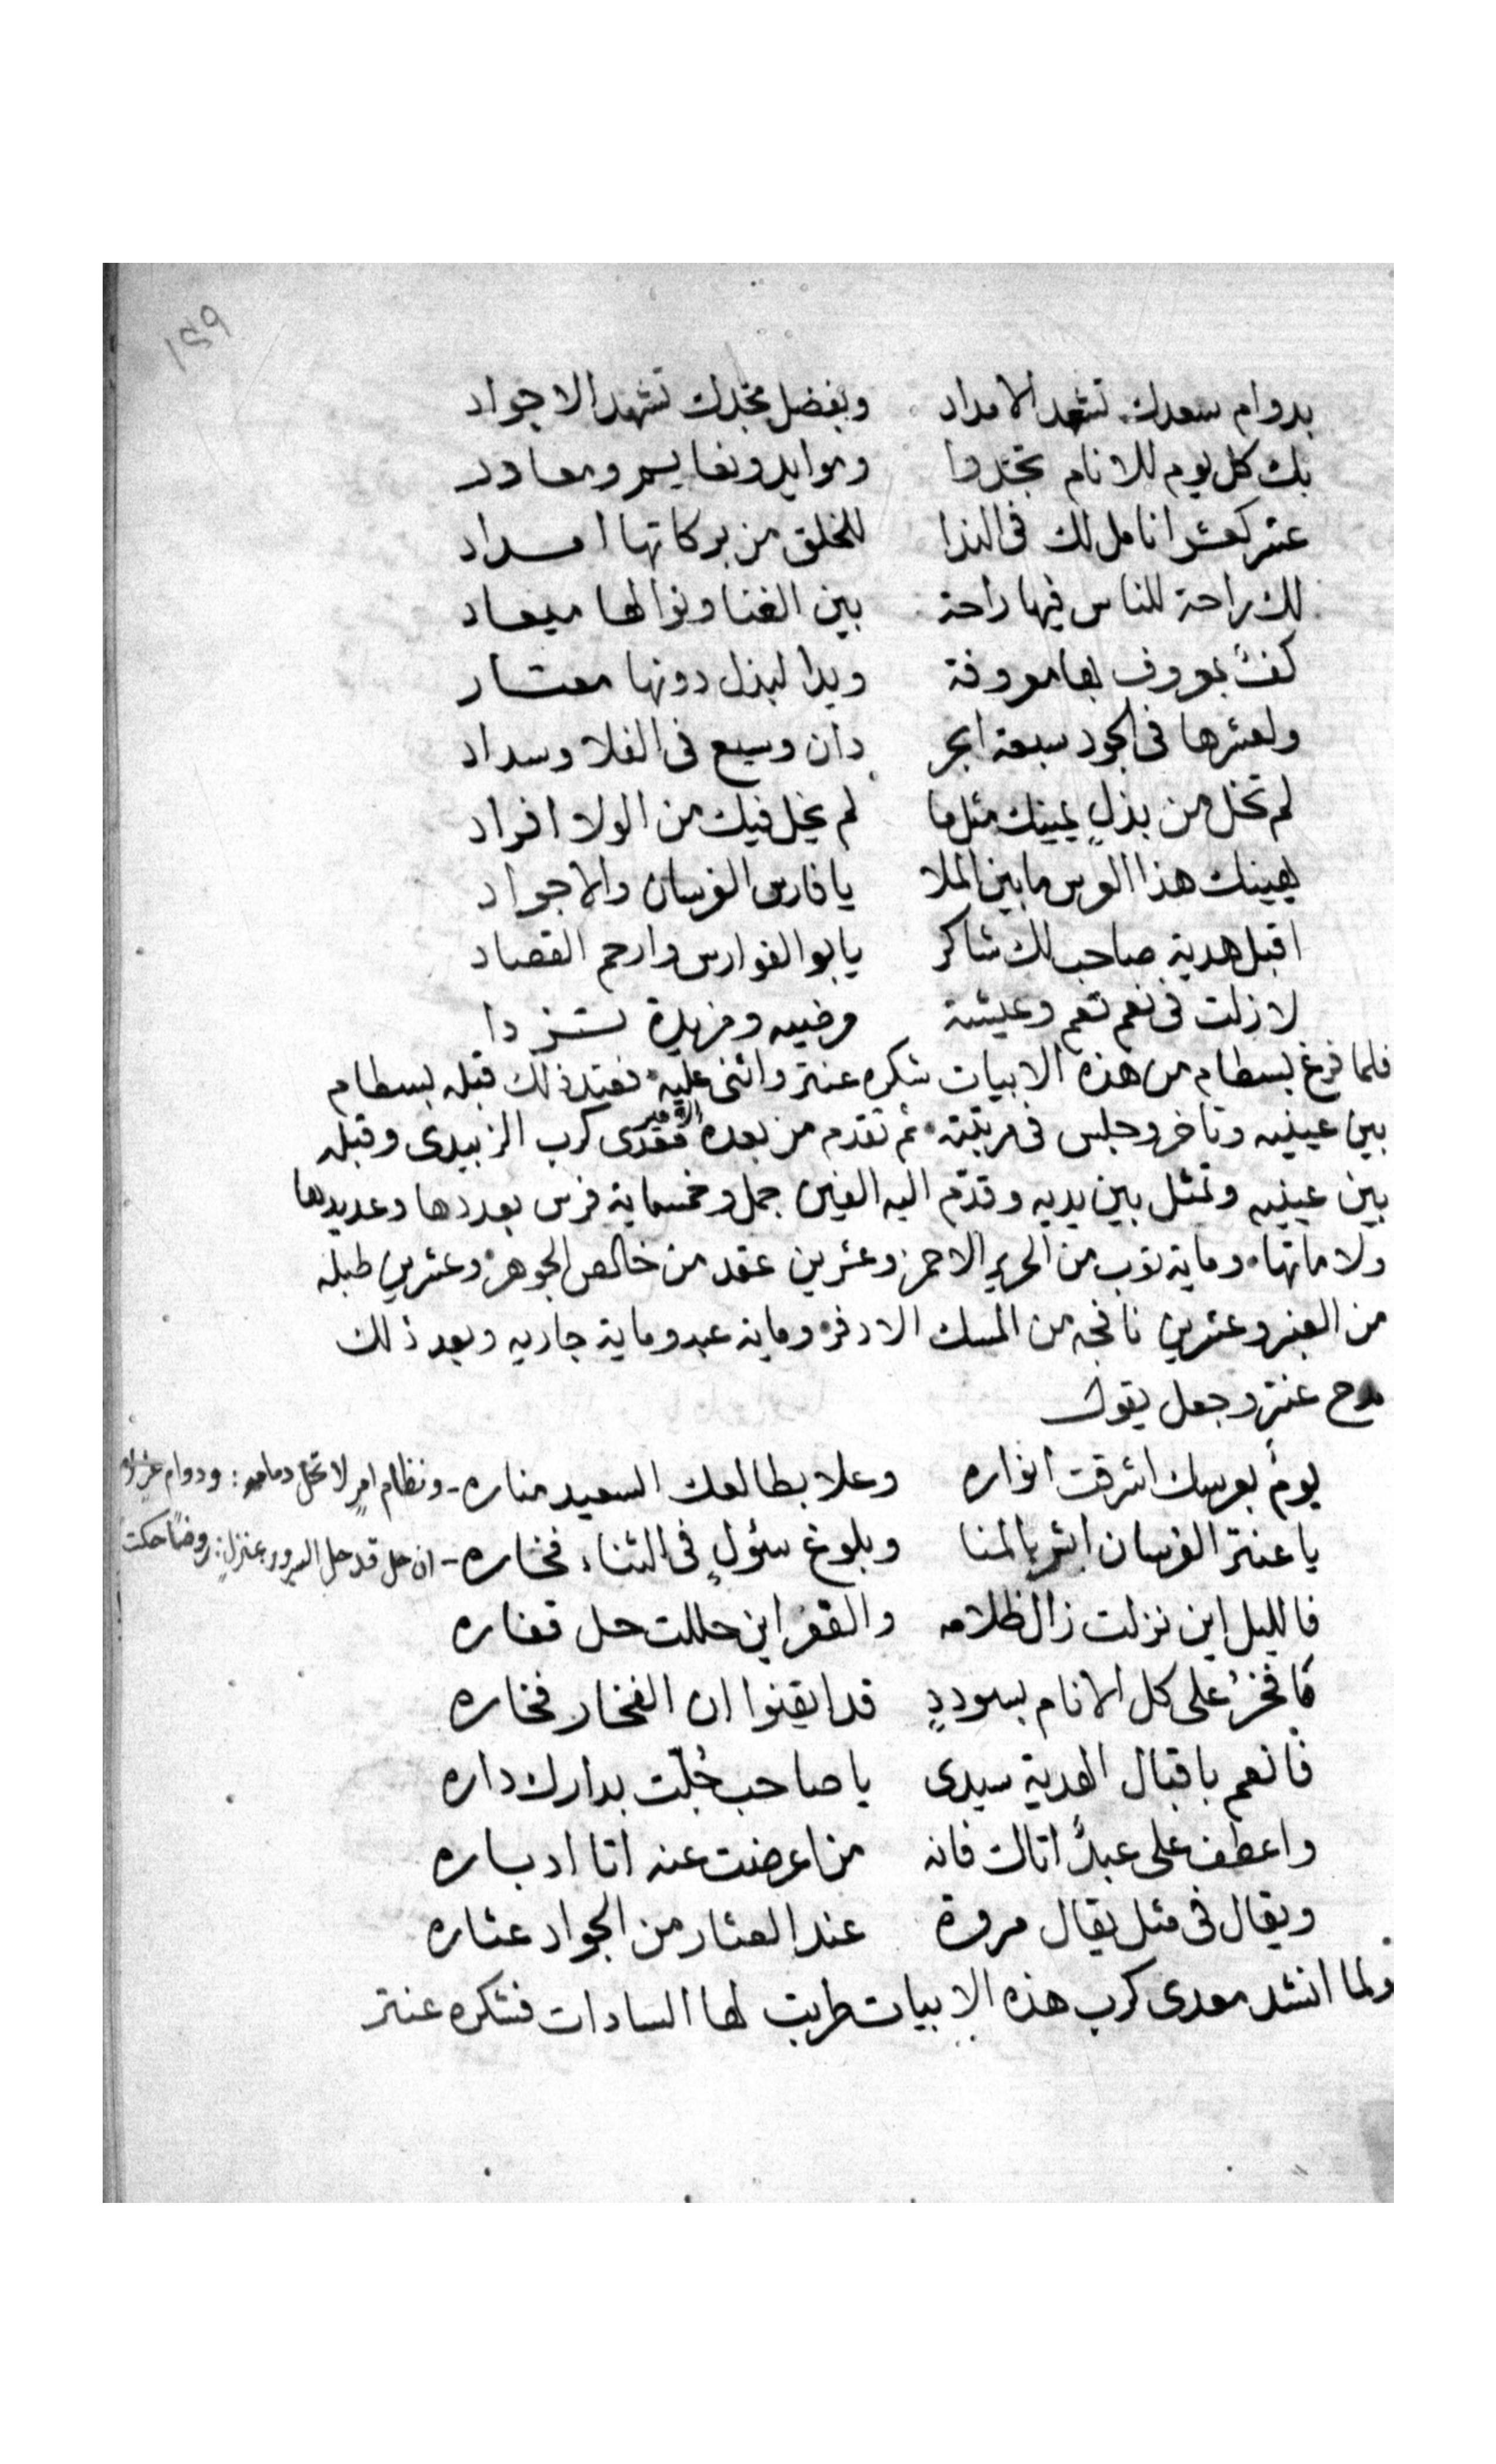 ١٤٩
بدوام سعدك تشهد الامداد وبفضل مجدك تشهد الاجواد
بك كل يوم للانام تجددوا وموايد ونفايس ومعادد
عشر كعشر انامل لك فى الندا للخلق من بركاتها امداد
لك راحة للناس فيها راحة بين الغنا ونوالها ميعاد
كفٌ بمعروف لها معروفة ويدا لبذل دونها معتـاد
ولعشرها فى الجود سبعة ابحر دان وسيع فى الفلا وسداد
لم تخل من بذلٍ يمينك مثل ما لم يخل فيك من الولا افراد
يهينك هذا العرس ما بين الملا يا فارس الفرسان والاجواد
اقبل هدية صاحب لك شاكر يابو الفوارس وارحم القصاد
لا زلت فى نعم تعم وعيشة مرضيه ومزيدة تـزدا
فلما فرغ بسطام من هذه الابيات شكره عنتر واثنى عليه فعند ذلك قبله بسطام
بين عينيه وتاخر وجلس فى مرتبته ثم تقدم من بعده الامير معدى كرب الزبيدى وقبله
بين عينيه وتمثل بين يديه وقدّم اليه الفين جمل وخمسماية فرس بعددها وعديدها
ولاماتها وماية توب من الحرير الاحمر وعشرين عقد من خالص الجوهر وعشرين طبله
من العنبر وعشرين نافجه من المسك الادفر وماية عبد وماية جاريه وبعد ذلك
مدح عنتر وجعل يقول
يومٌ بعرسك اشرقت انواره وعلا بطالعك السعيد مناره - ونظام امرٍ لا تحل دمامه : ودوام عز
يا عنتر الفرسان ابشر بالمنا وبلوغ سئولٍ فى الثناء فخاره - ان حل قد حل السرور بمنزلٍ : روضًا حكت
فالليل اين نزلت زال ظلامه والقفر اين حللت حل قفاره
فافخرْ على كل الانام بسوددٍ قد ايقنوا ان الفخار فخاره
فانعم باقبال الهدية سيدى يا صاحب جُلّت بدارك داره
واعطف على عبدٍ اتاك فانه من اعرضت عنه اتا ادباره
ويقال فى مثل يقال مروة عند العثار من الجواد عثاره
ولما انشد معدى كرب هذه الابيات طربت لها السادات فشكره عنتر